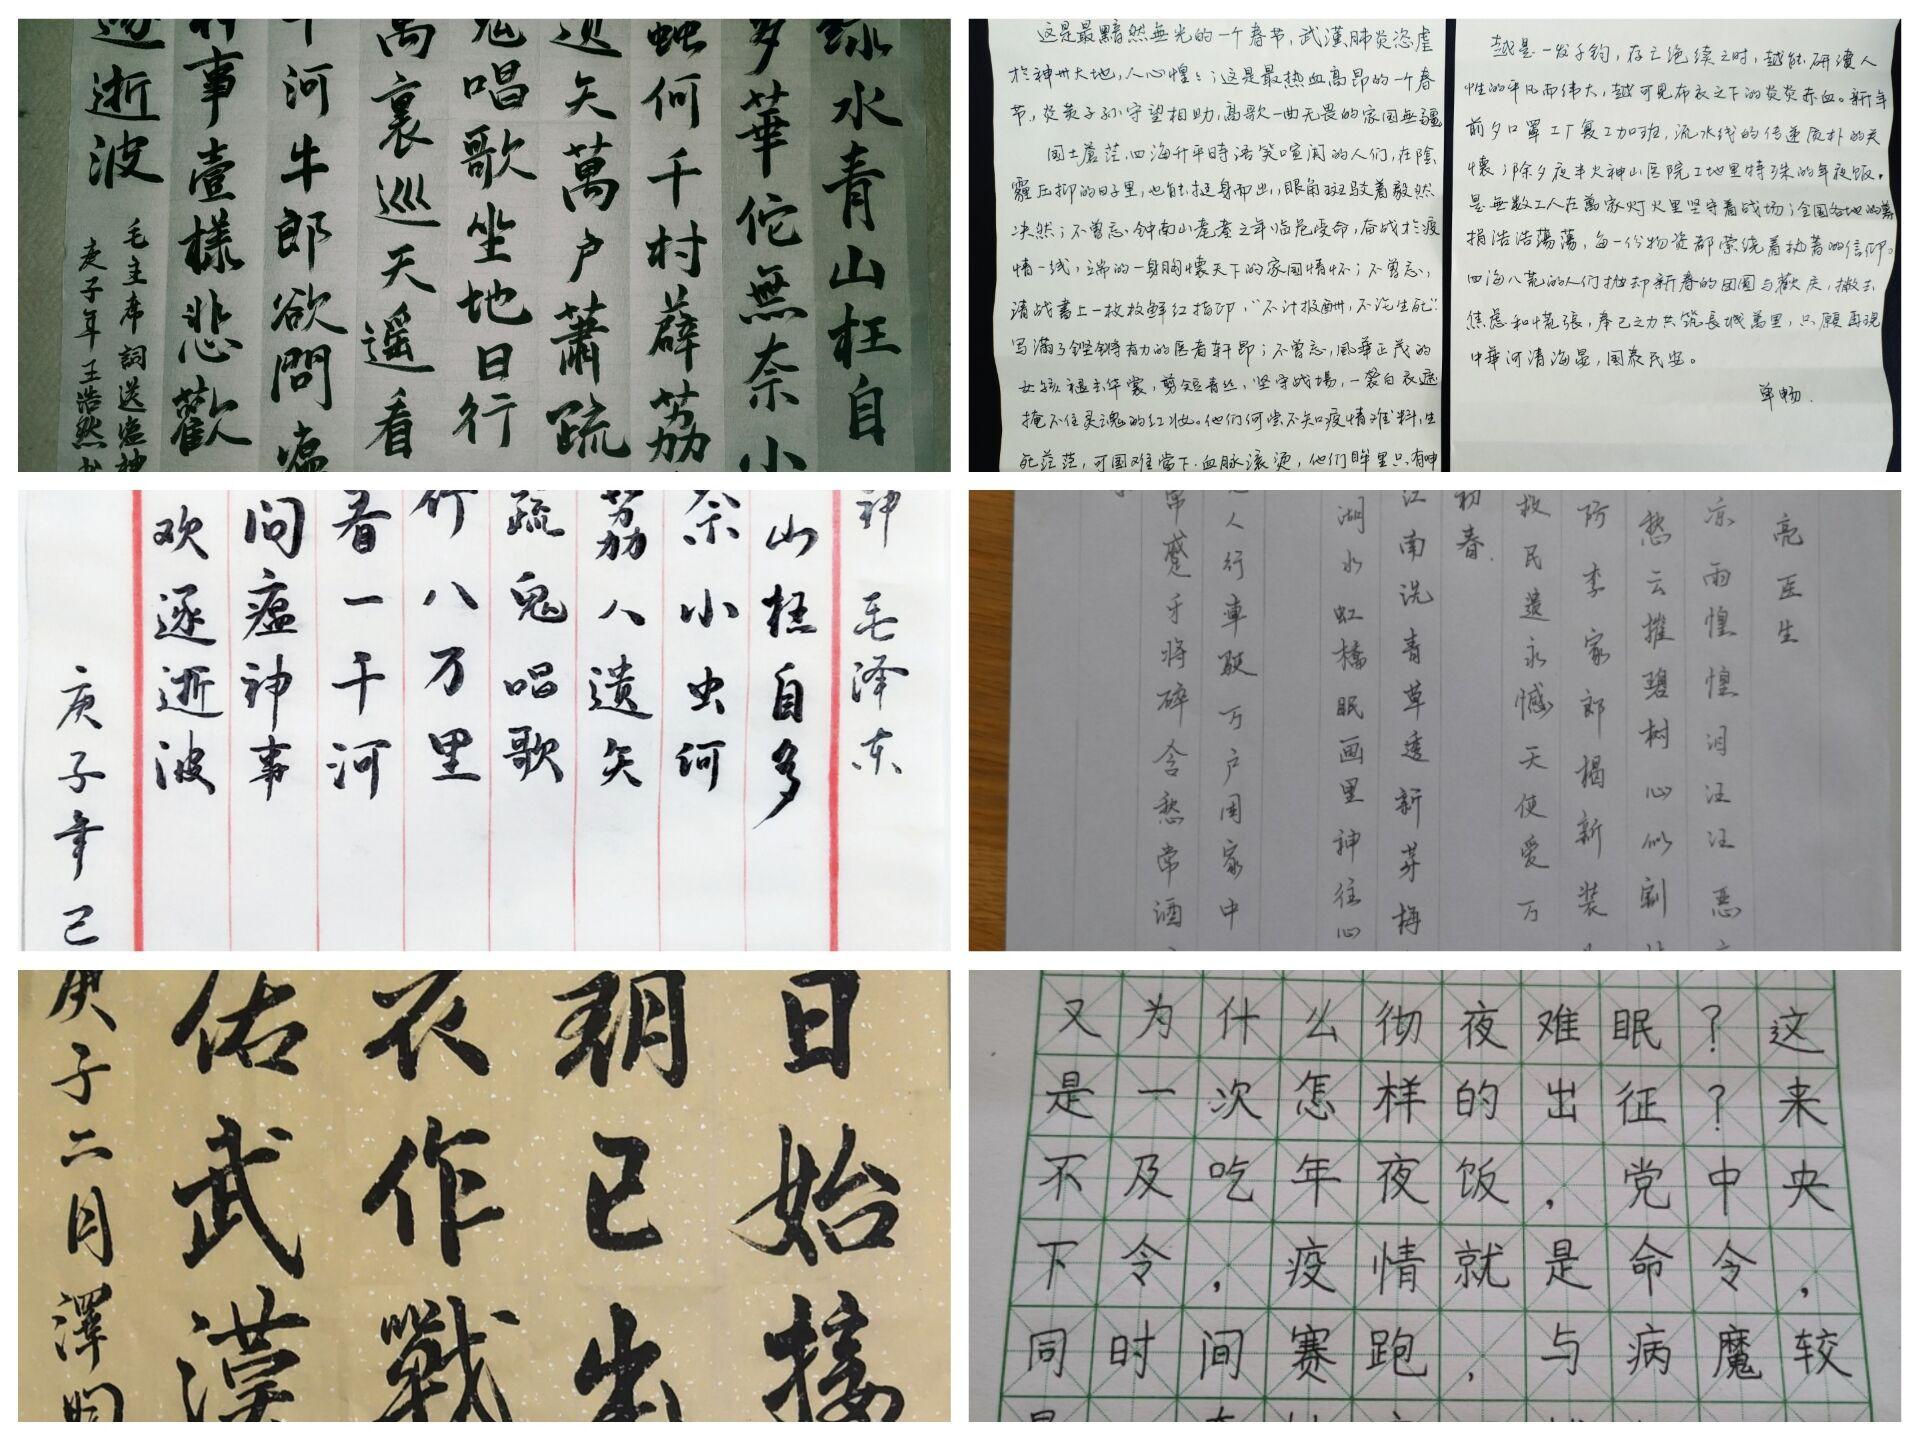 绿水青山枉自
多華佗無奈小
蟲何千村薜荔
遗矢萬户蕭疏
鬼唱歌坐地日行
萬裏巡天遥看
千河牛郎欲問瘟
神事壹樣悲歡
逐逝波
毛主席詞送瘟神
庚子年王浩然书
这是最黯然無光的一个春节,武漢肺炎恣虐
於神州大地,人心惶惶;这是最热血高昂的一个春
节,炎黄子孙守望相助,高歌一曲无畏的家国無疆
国土蒼茫,四海升平時语笑喧闹的人们,在陰
霾压抑的日子里,也能挺身而出,眼角斑驳着毅然
决然;不曾忘,钟南山耄耋之年临危受命,奋战於疫
情一线,端的一身胸懷天下的家国情怀;不曾忘,
请战書上一枚枚鲜红指印,“不计报酬,不论生死”
写满了铿锵有力的医者轩昂;不曾忘,風華正茂的
女孩褪去华裳,剪短青丝,坚守战場,一袭白衣遮
掩不住灵魂的红妆。他们何尝不知疫情难料,生
死茫茫,可国难當下,血脉滚烫,他们眸里只有呻
越是一发千钧,存亡绝续之时,越能研读人
性的平凡而伟大,越可見布衣之下的炎炎赤血。新年
前夕口罩工厂复工加班,流水线的传递质朴的关
懷;除夕夜半火神山医院工地里特殊的年夜饭,
是無数工人在萬家灯火里坚守着战场;全国各地的募
捐浩浩蕩蕩,每一份物资都萦绕着执着的信仰。
四海八荒的人们抛却新春的团圆与歡庆,撇去
焦虑和慌張,奉己之力共筑長城萬里,只願再现
中華河清海晏,国泰民安。
单畅.
神 毛泽东
山枉自多
奈小虫何
荔人遗矢
疏鬼唱歌
行八万里
看一千河
问瘟神事
欢逐逝波
庚子年己
亮医生
凉雨惶惶泪汪汪恶
愁云摧碧树心似割
阿李家郎褐新装
救民遗永憾天使爱万
初春.
江南洗青草透新芽梅
湖水虹橋眠画里神往心
人行車驶万户国家中
常蹙牙将碎含愁常酒
日始接
玥已出
衣作戰
佑武漢
庚子二月澤明
又为什么彻夜难眠?这
是一次怎样的出征?来
不及吃年夜饭,党中央
下令,疫情就是命令,
同时间赛跑,与病魔较